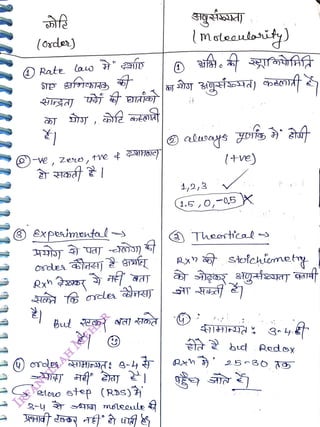 कोटि
(order)
① Rate law में दर्शाए
गए अभिकारक की
सान्द्रता पदों की घातांको
का योग, कोटि कहलाती
है।
② -ve, zero, +ve
हो सकती है।
③ Experimental →
प्रयोग से पता चलेगा की
order कौनसा है अर्थात्
Rxⁿ देखकर ये नहीं बता
सकते कि order कौनसा
है।
But रटकर बता सकते
है।
④ order सामान्यतः 3-4 से
ज्यादा नहीं होता है।
slow step (RDS) में
3-4 से ज्यादा molecule की
प्रभावी टक्कर नहीं हो पाती है।
अणुसंख्यता
(Molecularity)
① अभि. की स्टाइकियोमिति
का योग अणुसंख्यता कहलाती है।
② always पूर्णांक में होगी
(+ve)
1,2,3 ✓
1.5, 0, -0.5 X
③ Theortical →
Rxⁿ की stoichiometry
को जोड़कर अणुसंख्यता बतायी
जा सकती है।
④
सामान्यतः 3-4 ही
होते है but Redox
Rxⁿ में 25-30 तक
पहुँच जाते हैं।